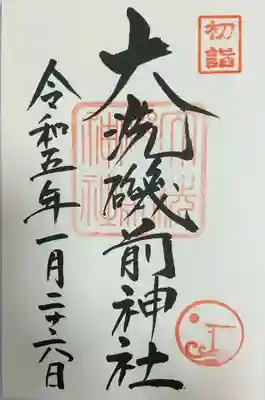 初詣
大洗磯前神社
令和五年一月二十六日